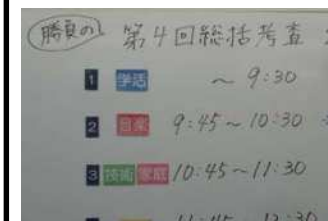 勝負の 第4回総括考査
1 学活 ~ 9:30
2 音楽 9:45~10:30
3 技術 家庭 10:45~11:30